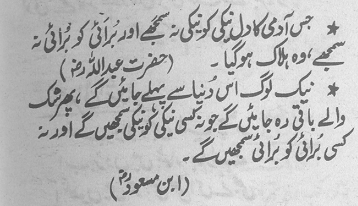 ★ جس آدمی کا دل نیکی کو نیکی نہ سمجھے اور بُرائی کو بُرائی نہ
سمجھے، وہ ہلاک ہو گیا۔ (حضرت عبداللہؓ)
★ نیک لوگ اس دُنیا سے پہلے جائیں گے، پھر شک
والے باقی رہ جائیں گے جو نہ کسی نیکی کو نیکی سمجھیں گے اور نہ
کسی بُرائی کو بُرائی سمجھیں گے۔
(ابن مسعودؓ)